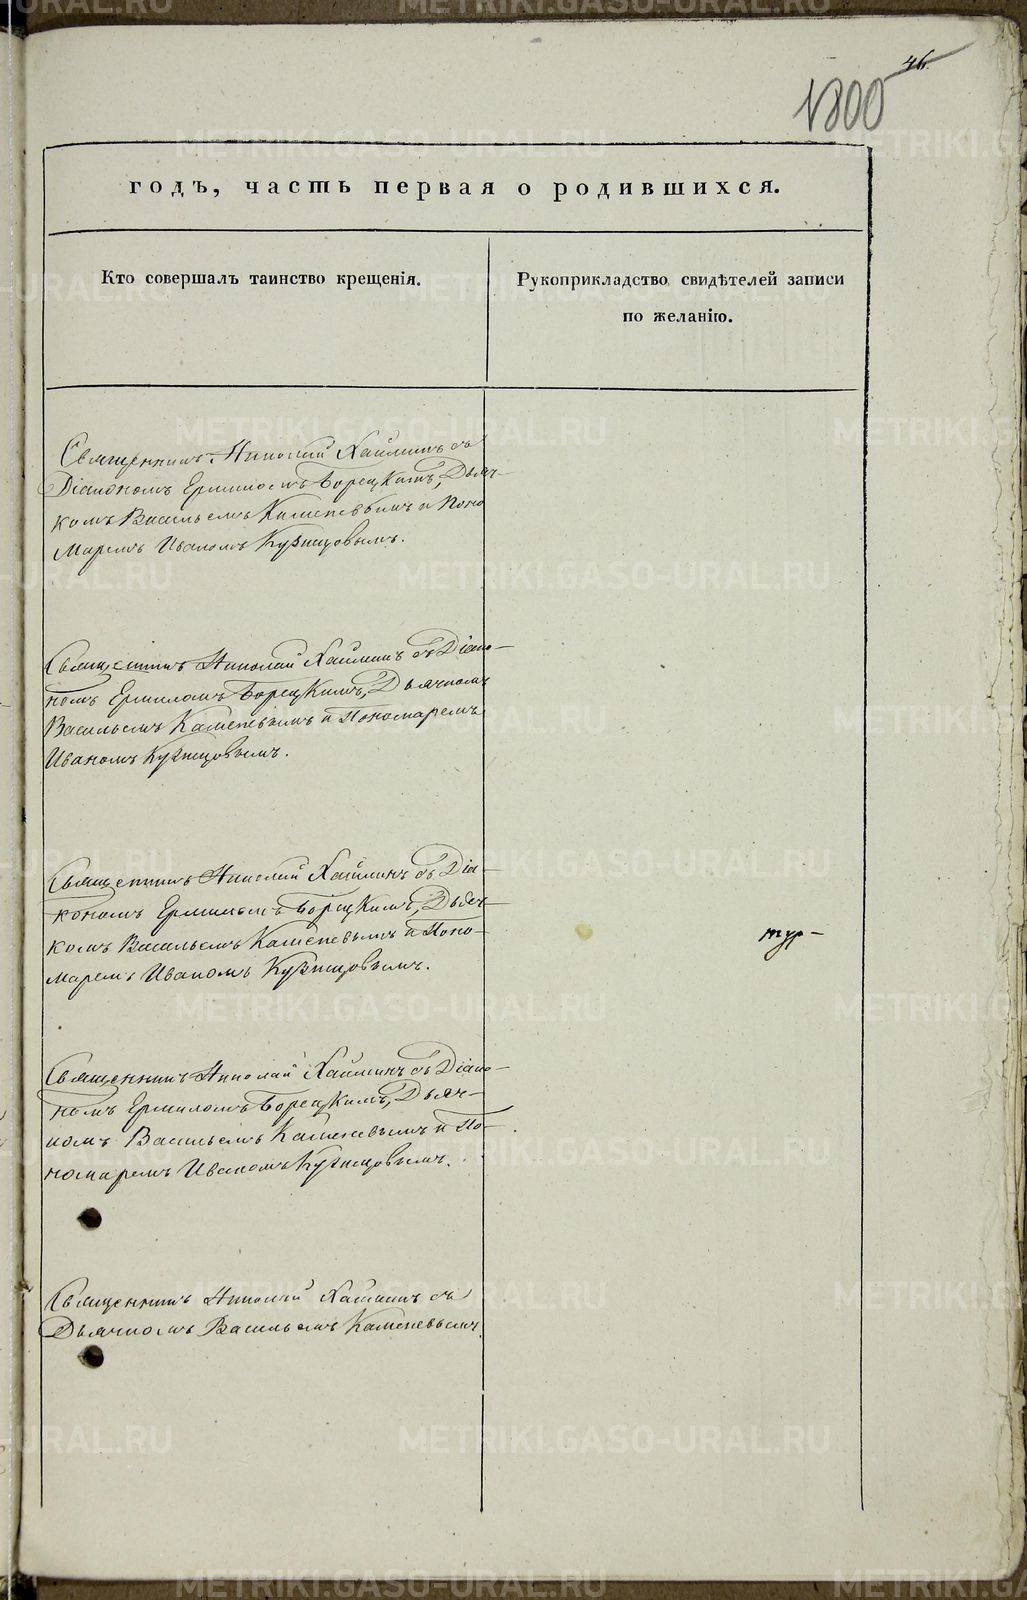 46.
1800
годъ, часть первая о родившихся.
Кто совершалъ таинство крещенія.
Рукоприкладство свидѣтелей записи
по желанію.
Священникъ Николай Хайминъ съ
Діакономъ Ермиломъ Борецкимъ, Дьяч-
комъ Васильемъ Каменевымъ и Поно
маремъ Иваномъ Кузнецовымъ.
Священникъ Николай Хайминъ съ Діако-
номъ Ермиломъ Борецкимъ, Дьячкомъ
Васильемъ Каменевымъ и Пономаремъ
Иваномъ Кузнецовымъ.
Священникъ Николай Хайминъ съ Діа-
кономъ Ермиломъ Борецкимъ, Дьяч-
комъ Васильемъ Каменевымъ и Поно-
маремъ Иваномъ Кузнецовымъ.
тур-
Священникъ Николай Хайминъ съ Діако-
номъ Ермиломъ Борецкимъ, Дьяч-
комъ Васильемъ Каменевымъ и По-
номаремъ Иваномъ Кузнецовымъ.
Священникъ Николай Хайминъ съ
Дьячкомъ Васильемъ Каменевымъ.
METRIKI.GASO-URAL.RU